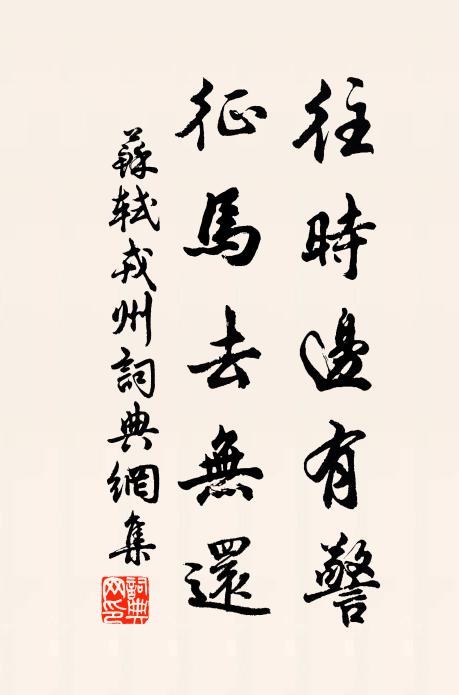 往時邊有警
征馬去無還
蘇軾戎州詞典網集
詞典网印